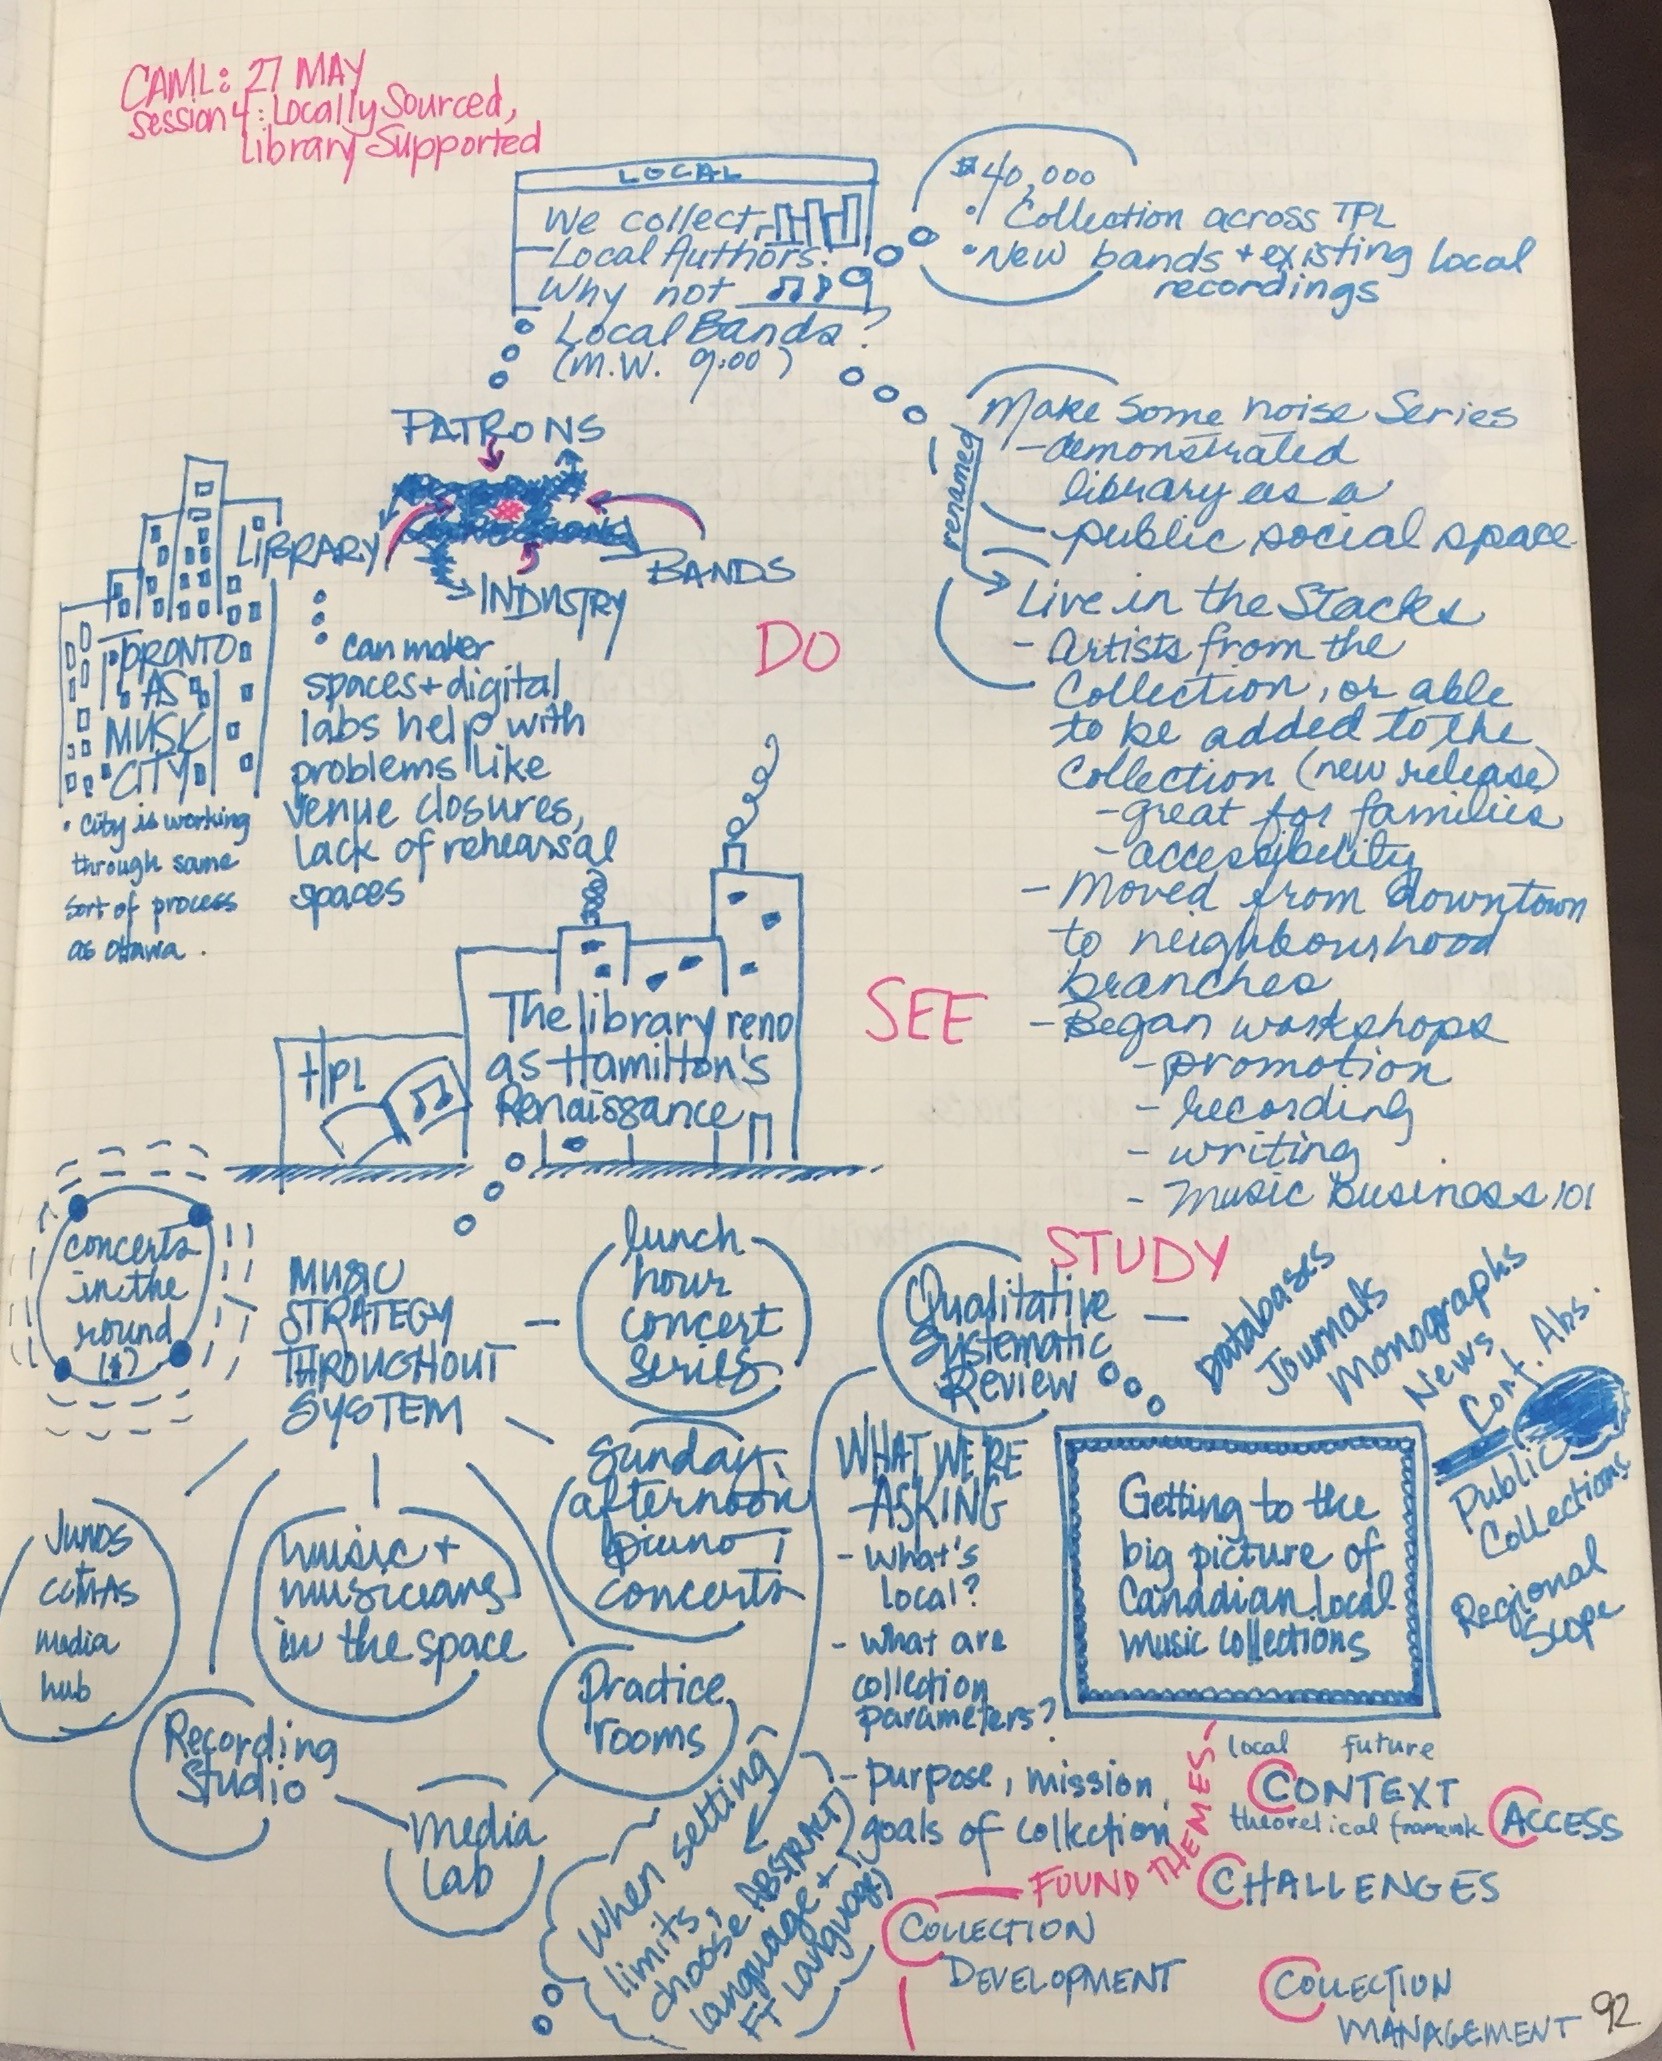 CAML: 27 MAY
Session 4: Locally Sourced,
Library Supported
LOCAL
We collect
Local Authors.
Why not
Local Bands?
(M.W. 9:00)
$40,000
• Collection across TPL
• New bands + existing local
recordings
PATRONS
LIBRARY
BANDS
INDUSTRY
TORONTO
AS
MUSIC
CITY
• City is working
through same
sort of process
as Ottawa.
can maker
spaces + digital
labs help with
problems like
venue closures,
lack of rehearsal
spaces
DO
renamed
Make Some Noise Series
- demonstrated
library as a
public social space
Live in the Stacks
- Artists from the
Collection, or able
to be added to the
Collection (new release)
- great for families
- accessibility
- Moved from downtown
to neighbourhood
branches
- Began workshops
- promotion
- recording
- writing
- Music Business 101
SEE
HPL
The library reno
as Hamilton's
Renaissance
concerts
in the
round
MUSIC
STRATEGY
THROUGHOUT
SYSTEM
lunch
hour
concert
series
Sunday
afternoon
piano
concerts
Junos
CCMAS
media
hub
music +
musicians
in the space
Practice
rooms
Recording
Studio
media
lab
STUDY
Qualitative
Systematic
Review
Databases
Journals
Monographs
News
Conf. Abs.
Public
Collections
Regional
Scope
WHAT WE'RE
ASKING
- What's
local?
- what are
collection
parameters?
- purpose, mission,
goals of collection
Getting to the
big picture of
Canadian local
music collections
When setting
limits,
choose ABSTRACT
language +
FT Language
FOUND THEMES
local future
CONTEXT
theoretical framework
ACCESS
CHALLENGES
COLLECTION
DEVELOPMENT
COLLECTION
MANAGEMENT
92